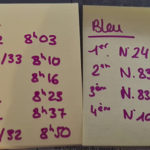 2 8h03
/33 8h10
8h16
8h23
8h37
/32 8h50
Bleu
1er. N.24
2en N.83
3ème N.83
4ème N.10